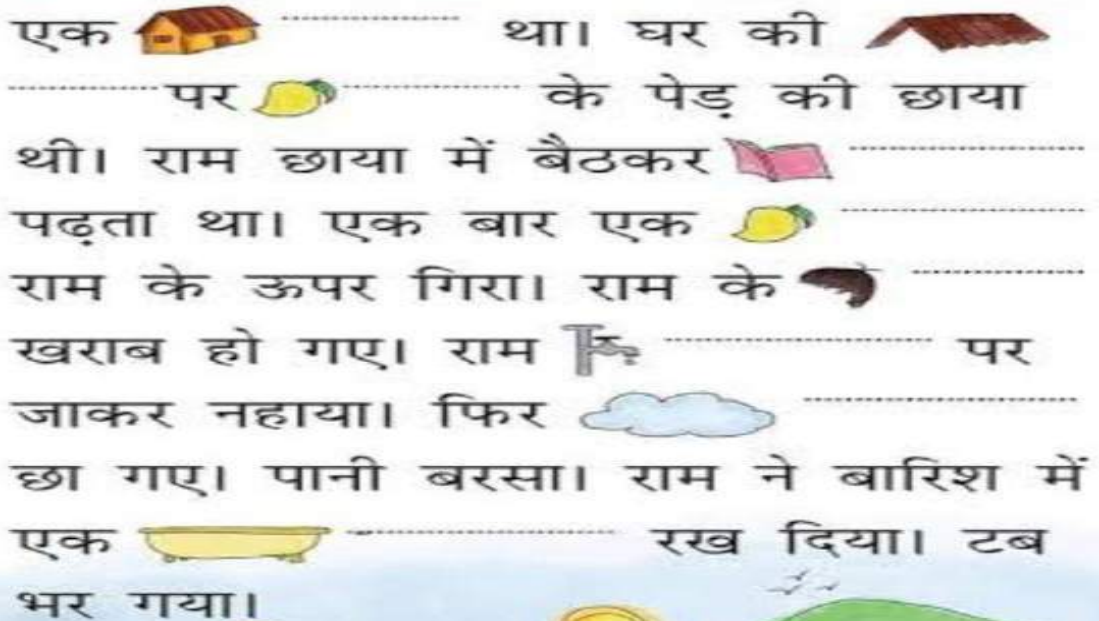 एक ---------- था। घर की
---------- पर ---------- के पेड़ की छाया
थी। राम छाया में बैठकर ----------
पढ़ता था। एक बार एक ----------
राम के ऊपर गिरा। राम के ----------
खराब हो गए। राम ---------- पर
जाकर नहाया। फिर ----------
छा गए। पानी बरसा। राम ने बारिश में
एक ---------- रख दिया। टब
भर गया।